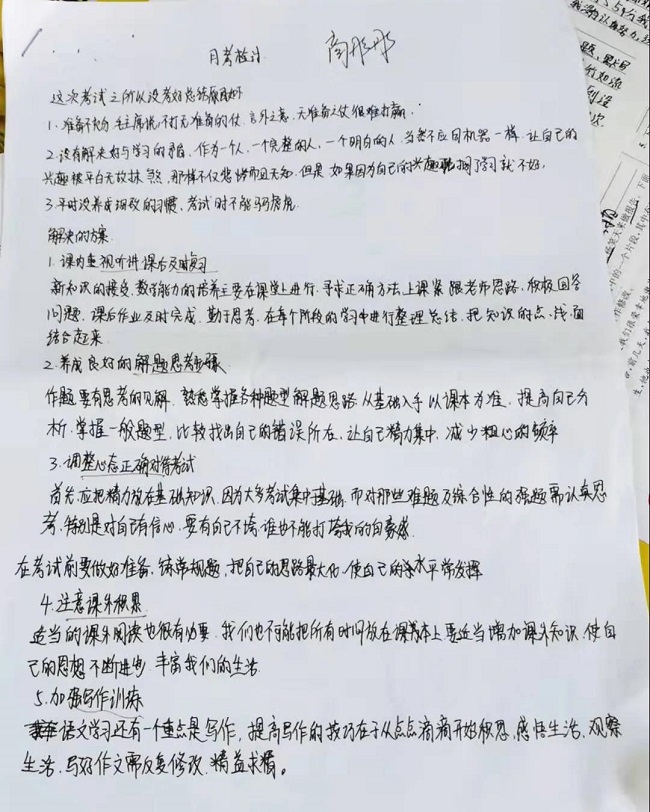 月考检讨
这次考试之所以没考好总结原因如下
1.准备不充分.毛主席说,不打无准备的仗.言外之意,无准备之仗很难打赢.
2.没有解决好与学习的矛盾,作为一个人,一个完整的人,一个明白的人.当然不应同机器一样.让自己的
兴趣被平白无故抹煞.那样不仅悲惨而且无知.但是如果因为自己的兴趣耽搁了学习就不好,
3.平时没养成细致的习惯.考试时不能马虎
解决的方案
1.课内重视听讲课后及时复习
新知识的接受,数学能力的培养主要在课堂上进行.寻求正确方法.上课紧跟老师思路,积极回答
问题.课后作业及时完成.勤于思考.在每个阶段的学习中进行整理总结.把知识的点、线、面
结合起来.
2.养成良好的解题思考步骤
作题要有思考的见解.熟悉掌握各种题型解题思路从基础入手以课本为准.提高自己分
析.掌握一般题型,比较找出自己的错误所在,让自己精力集中.减少粗心的频率
3.调整心态正确对待考试
首先应把精力放在基础知识.因为大多考试集中基础.而对那些难题及综合性的强题需认真思
考.特别是对自己有信心.要有自己不垮谁也不能打垮我的自豪感.
在考试前要做好准备.练常规题,把自己的思路最大化.使自己的水平常发挥
4.注意课外积累
适当的课外阅读也很有必要.我们也不可能把所有时间放在课本上要适当增加课外知识.使自
己的思想不断进步.丰富我们的生活
5.加强写作训练
语文学习还有一个重点是写作,提高写作的技巧在于从点点滴滴开始积思,感悟生活,观察
生活,写好作文需反复修改.精益求精。